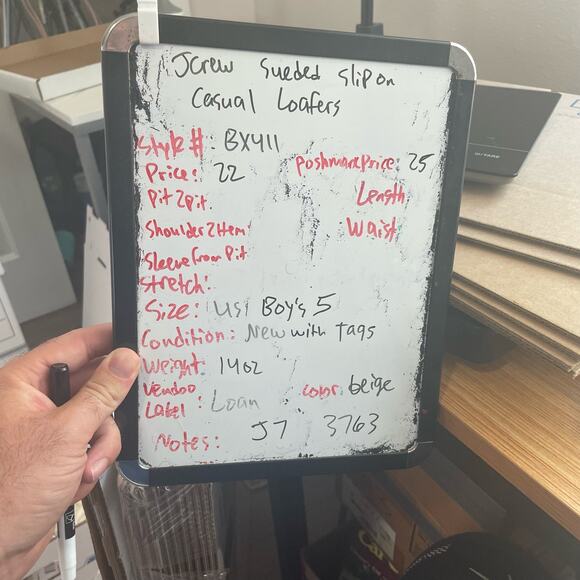 JCrew Sueded Slip on
Casual Loafers
Style #: BX411
Price: 22
PoshmarkPrice: 25
Pit2Pit:
Length
Shoulder2Hem
Waist
Sleeve From Pit
Stretch:
Size: US Boy's 5
Condition: New with Tags
Weight: 14oz
Vendoo
Label: Loan
Color: beige
Notes: J7 3763